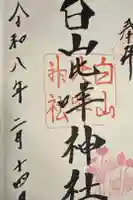 奉拝
白山比咩神社
白山
神社
令和八年二月十四日